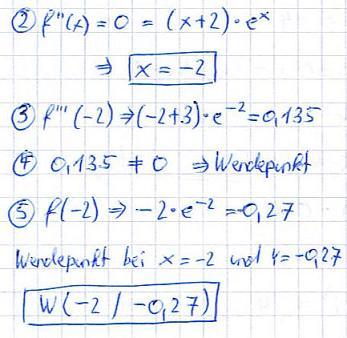 ② f''(x) = 0 = (x+2)·eˣ
⇒ x = -2
③ f'''(-2) ⇒ (-2+3)·e⁻² = 0,135
④ 0,135 ≠ 0 ⇒ Wendepunkt
⑤ f(-2) ⇒ -2·e⁻² = -0,27
Wendepunkt bei x = -2 und y = -0,27
W(-2 / -0,27)